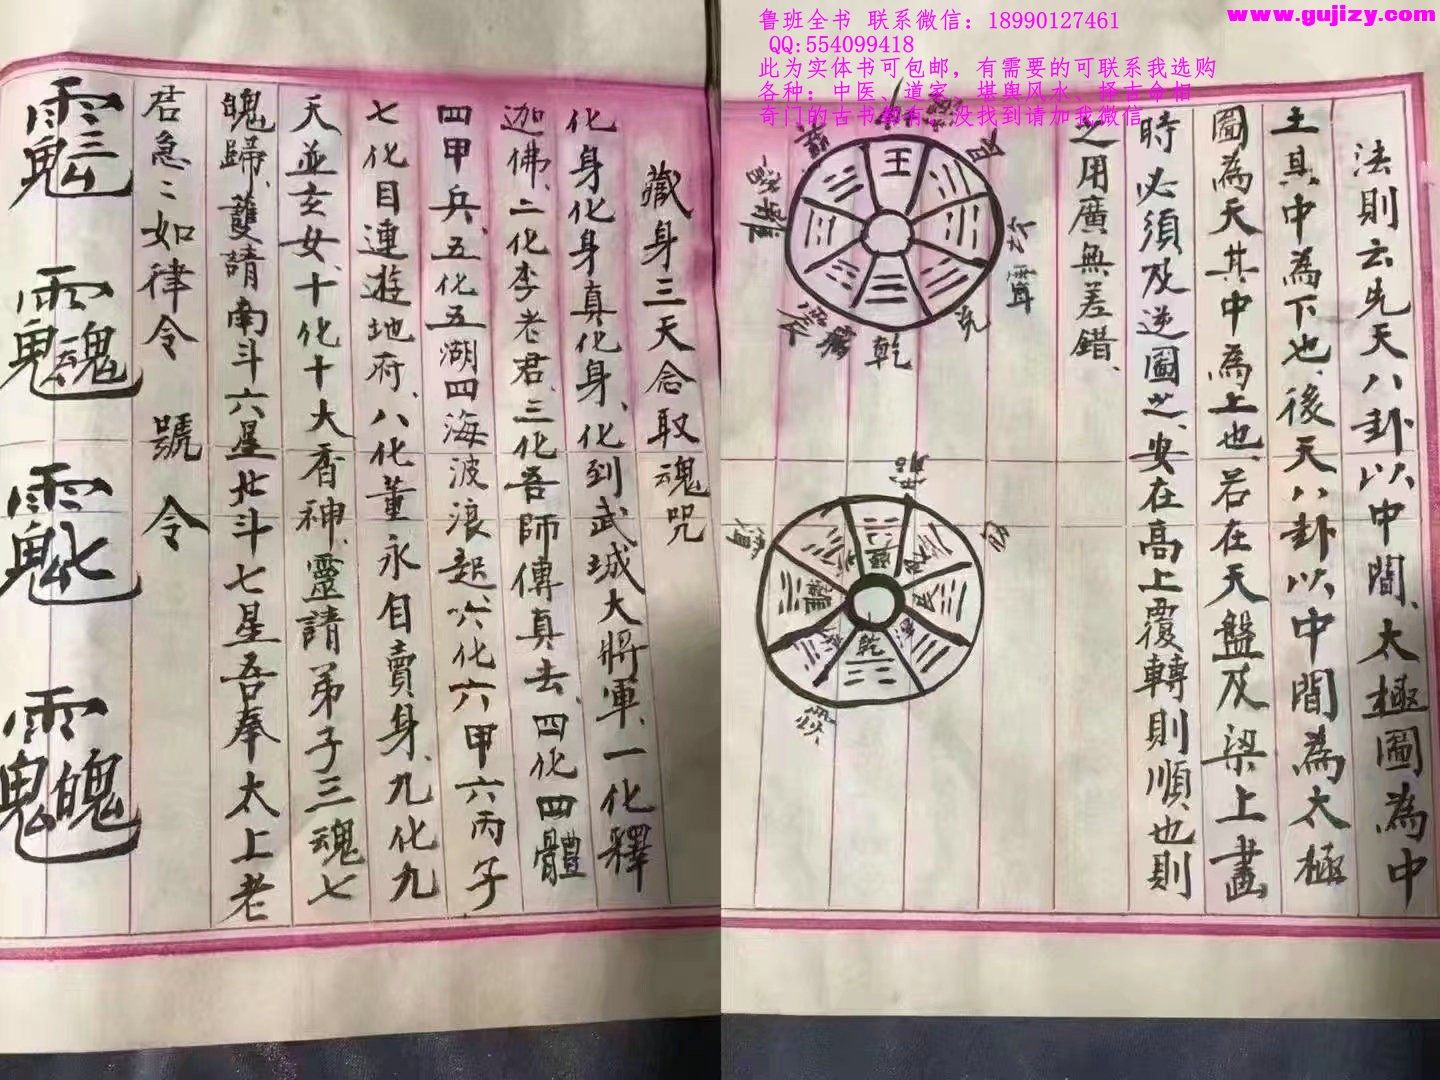 鲁班全书 联系微信：18990127461
QQ:554099418
此为实体书可包邮，有需要的可联系我选购
各种：中医、道家、堪舆风水、择吉命相
奇门的古书都有，没找到请加我微信
www.gujizy.com
法則云先天八卦以中間、太極圖為中
土其中為下也、後天八卦以中間為太極
圖為天其中為上也、若在天盤及梁上畫
時必須及逆圖之、安在高上覆轉則順也則
之用廣無差錯、
王
艮
兌
乾
乾
藏身三天念取魂咒
化身化身真化身、化到武城大將軍、一化釋
迦佛、二化李老君、三化吾師傳真去、四化四體
四甲兵、五化五湖四海波浪起、六化六甲六丙子
七化目連遊地府、八化董永自賣身、九化九
天並玄女、十化十大香神、靈請弟子三魂七
魄歸、雙請南斗六星北斗七星吾奉太上老
君急〻如律令 號令